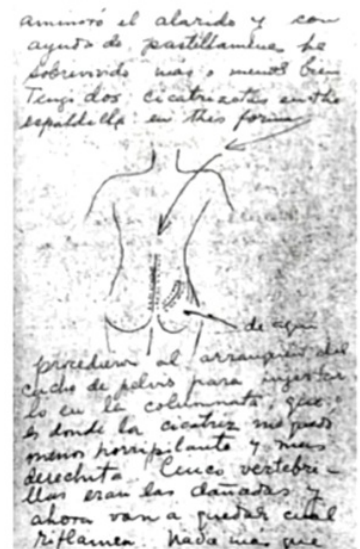 aminoró el alarido y con
ayuda de pastillamenes he
sobrevivido más o menos bien
Tengo dos cicatrizotas en the
espaldilla en this forma
de aquí
procedieron al arranquen del
cacho de pelvis para injertar
lo en la columnata, que
es donde la cicatriz me quedó
menos horripilante y más
derechita. Cinco vertebri-
llas eran las dañadas y
ahora van a quedar cual
riflamen. Nada más que